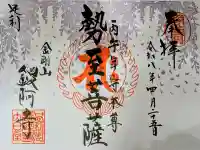 奉拝
令和八年四月二十五日
丙午年守本尊
勢至菩薩
足利
金剛山
鑁阿寺